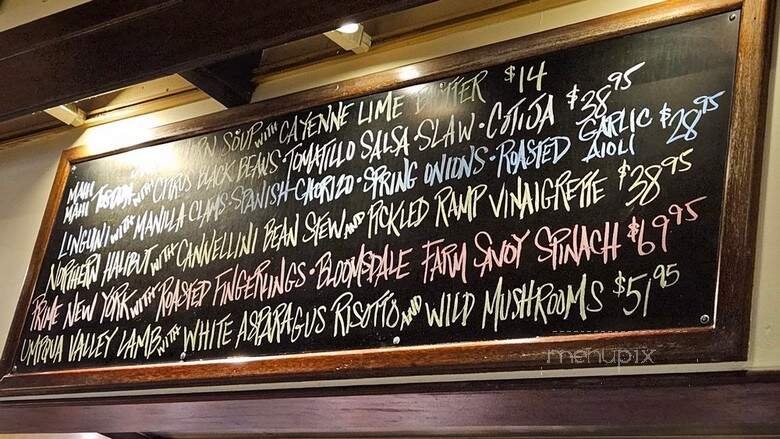 SOUP WITH CAYENNE LIME BUTTER $14
MAHI MAHI WITH CITRUS BLACK BEANS · TOMATILLO SALSA · SLAW · COTIJA $38 95
LINGUINI WITH MANILA CLAMS · SPANISH CHORIZO · SPRING ONIONS · ROASTED GARLIC AIOLI $28 95
NORTHERN HALIBUT WITH CANNELLINI BEAN STEW AND PICKLED RAMP VINAIGRETTE $38 95
PRIME NEW YORK WITH ROASTED FINGERLINGS · BLOOMSDALE FARM SAVOY SPINACH $69 95
UMPQUA VALLEY LAMB WITH WHITE ASPARAGUS RISOTTO AND WILD MUSHROOMS $51 95
menupix